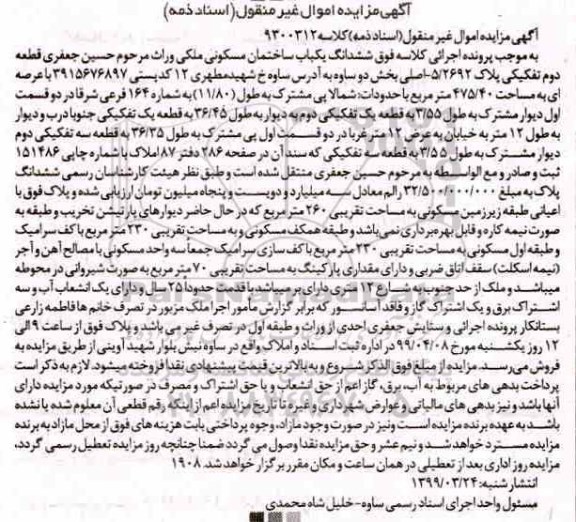 آگهی مزایده اموال غیر منقول (اسناد ذمه)
آگهی مزایده اموال غیر منقول (اسناد ذمه) کلاسه ۹۳۰۰۳۱۲
به موجب پرونده اجرائی کلاسه فوق ششدانگ یکباب ساختمان مسکونی ملکی وراث مرحوم حسین جعفری قطعه
دوم تفکیکی پلاک ۵/۲۶۹۲-اصلی بخش دو ساوه به آدرس ساوه خ شهیدمطهری ۱۲ کدپستی ۳۹۱۵۶۷۶۸۹۷ با عرصه
ای به مساحت ۴۷۵/۴۰ متر مربع با حدودات: شمالا پی مشترک به طول (۱۱/۸۰) به شماره ۱۶۴ فرعی شرقا در دو قسمت
اول دیوار مشترک به طول ۳/۵۵ به قطعه یک تفکیکی دوم به دیوار به طول ۳۶/۴۵ به قطعه یک تفکیکی جنوبا درب و دیوار
به طول ۱۲ متر به خیابان به عرض ۱۲ متر غربا در دو قسمت اول پی مشترک به طول ۳۶/۳۵ به قطعه سه تفکیکی دوم
دیوار مشترک به طول ۳/۵۵ به قطعه سه تفکیکی که سند آن در صفحه ۲۸۶ دفتر ۸۷ املاک با شماره چاپی ۱۵۱۴۸۶
ثبت و صادر و مع الواسطه به مرحوم حسین جعفری منتقل شده است و طبق نظر هیئت کارشناسان رسمی ششدانگ
پلاک به مبلغ ۳۲/۵۰۰/۰۰۰/۰۰۰ رالم معادل سه میلیارد و دویست و پنجاه میلیون تومان ارزیابی شده و پلاک فوق با
اعیانی طبقه زیرزمین مسکونی به مساحت تقریبی ۲۶۰ متر مربع که در حال حاضر دیوارهای پارتیشن تخریب و طبقه به
صورت نیمه کاره و قابل بهره برداری نمی باشد و طبقه همکف مسکونی و به مساحت تقریبی ۲۳۰ متر مربع با کف سرامیک
و طبقه اول مسکونی به مساحت تقریبی ۲۳۰ متر مربع با کف سازی سرامیک جمعاً سه واحد مسکونی با مصالح آهن و آجر
(نیمه اسکلت) سقف اتاق ضربی و دارای مقداری پارکینگ به مساحت تقریبی ۷۰ متر مربع به صورت شیروانی در محوطه
میباشد و ملک از حد جنوب به شارع ۱۲ متری دارای بر میباشد با قدمت حدوداً ۲۵ سال و دارای یک انشعاب آب و سه
اشتراک برق و یک اشتراک گاز و فاقد آسانسور که برابر گزارش مأمور اجرا ملک مزبور در تصرف خانم ها فاطمه زارعی
بستانکار پرونده اجرائی و ستایش جعفری احدی از وراث و طبقه اول در تصرف غیر می باشد و پلاک فوق از ساعت ۹ الی
۱۲ روز یکشنبه مورخ ۹۹/۰۴/۰۸ در اداره ثبت اسناد و املاک واقع در ساوه نبش بلوار شهید آوینی از طریق مزایده به
فروش می رسد. مزایده از مبلغ فوق الذکر شروع و به بالاترین قیمت پیشنهادی نقدا فروخته میشود. لازم به ذکر است
پرداخت بدهی های مربوط به آب، برق، گاز اعم از حق انشعاب و یا حق اشتراک و مصرف در صورتیکه مورد مزایده دارای
آنها باشد و نیز بدهی های مالیاتی و عوارض شهرداری و غیره تا تاریخ مزایده اعم از اینکه رقم قطعی آن معلوم شده یا نشده
باشد به عهده برنده مزایده است و نیز در صورت وجود مازاد، وجوه پرداختی بابت هزینه های فوق از محل مازاد به برنده
مزایده مسترد خواهد شد و نیم عشر و حق مزایده نقدا وصول می گردد ضمنا چنانچه روز مزایده تعطیل رسمی گردد،
مزایده روز اداری بعد از تعطیلی در همان ساعت و مکان مقرر برگزار خواهد شد. ۱۹۰۸
انتشار شنبه: ۱۳۹۹/۰۳/۲۴
مسئول واحد اجرای اسناد رسمی ساوه- خلیل شاه محمدی